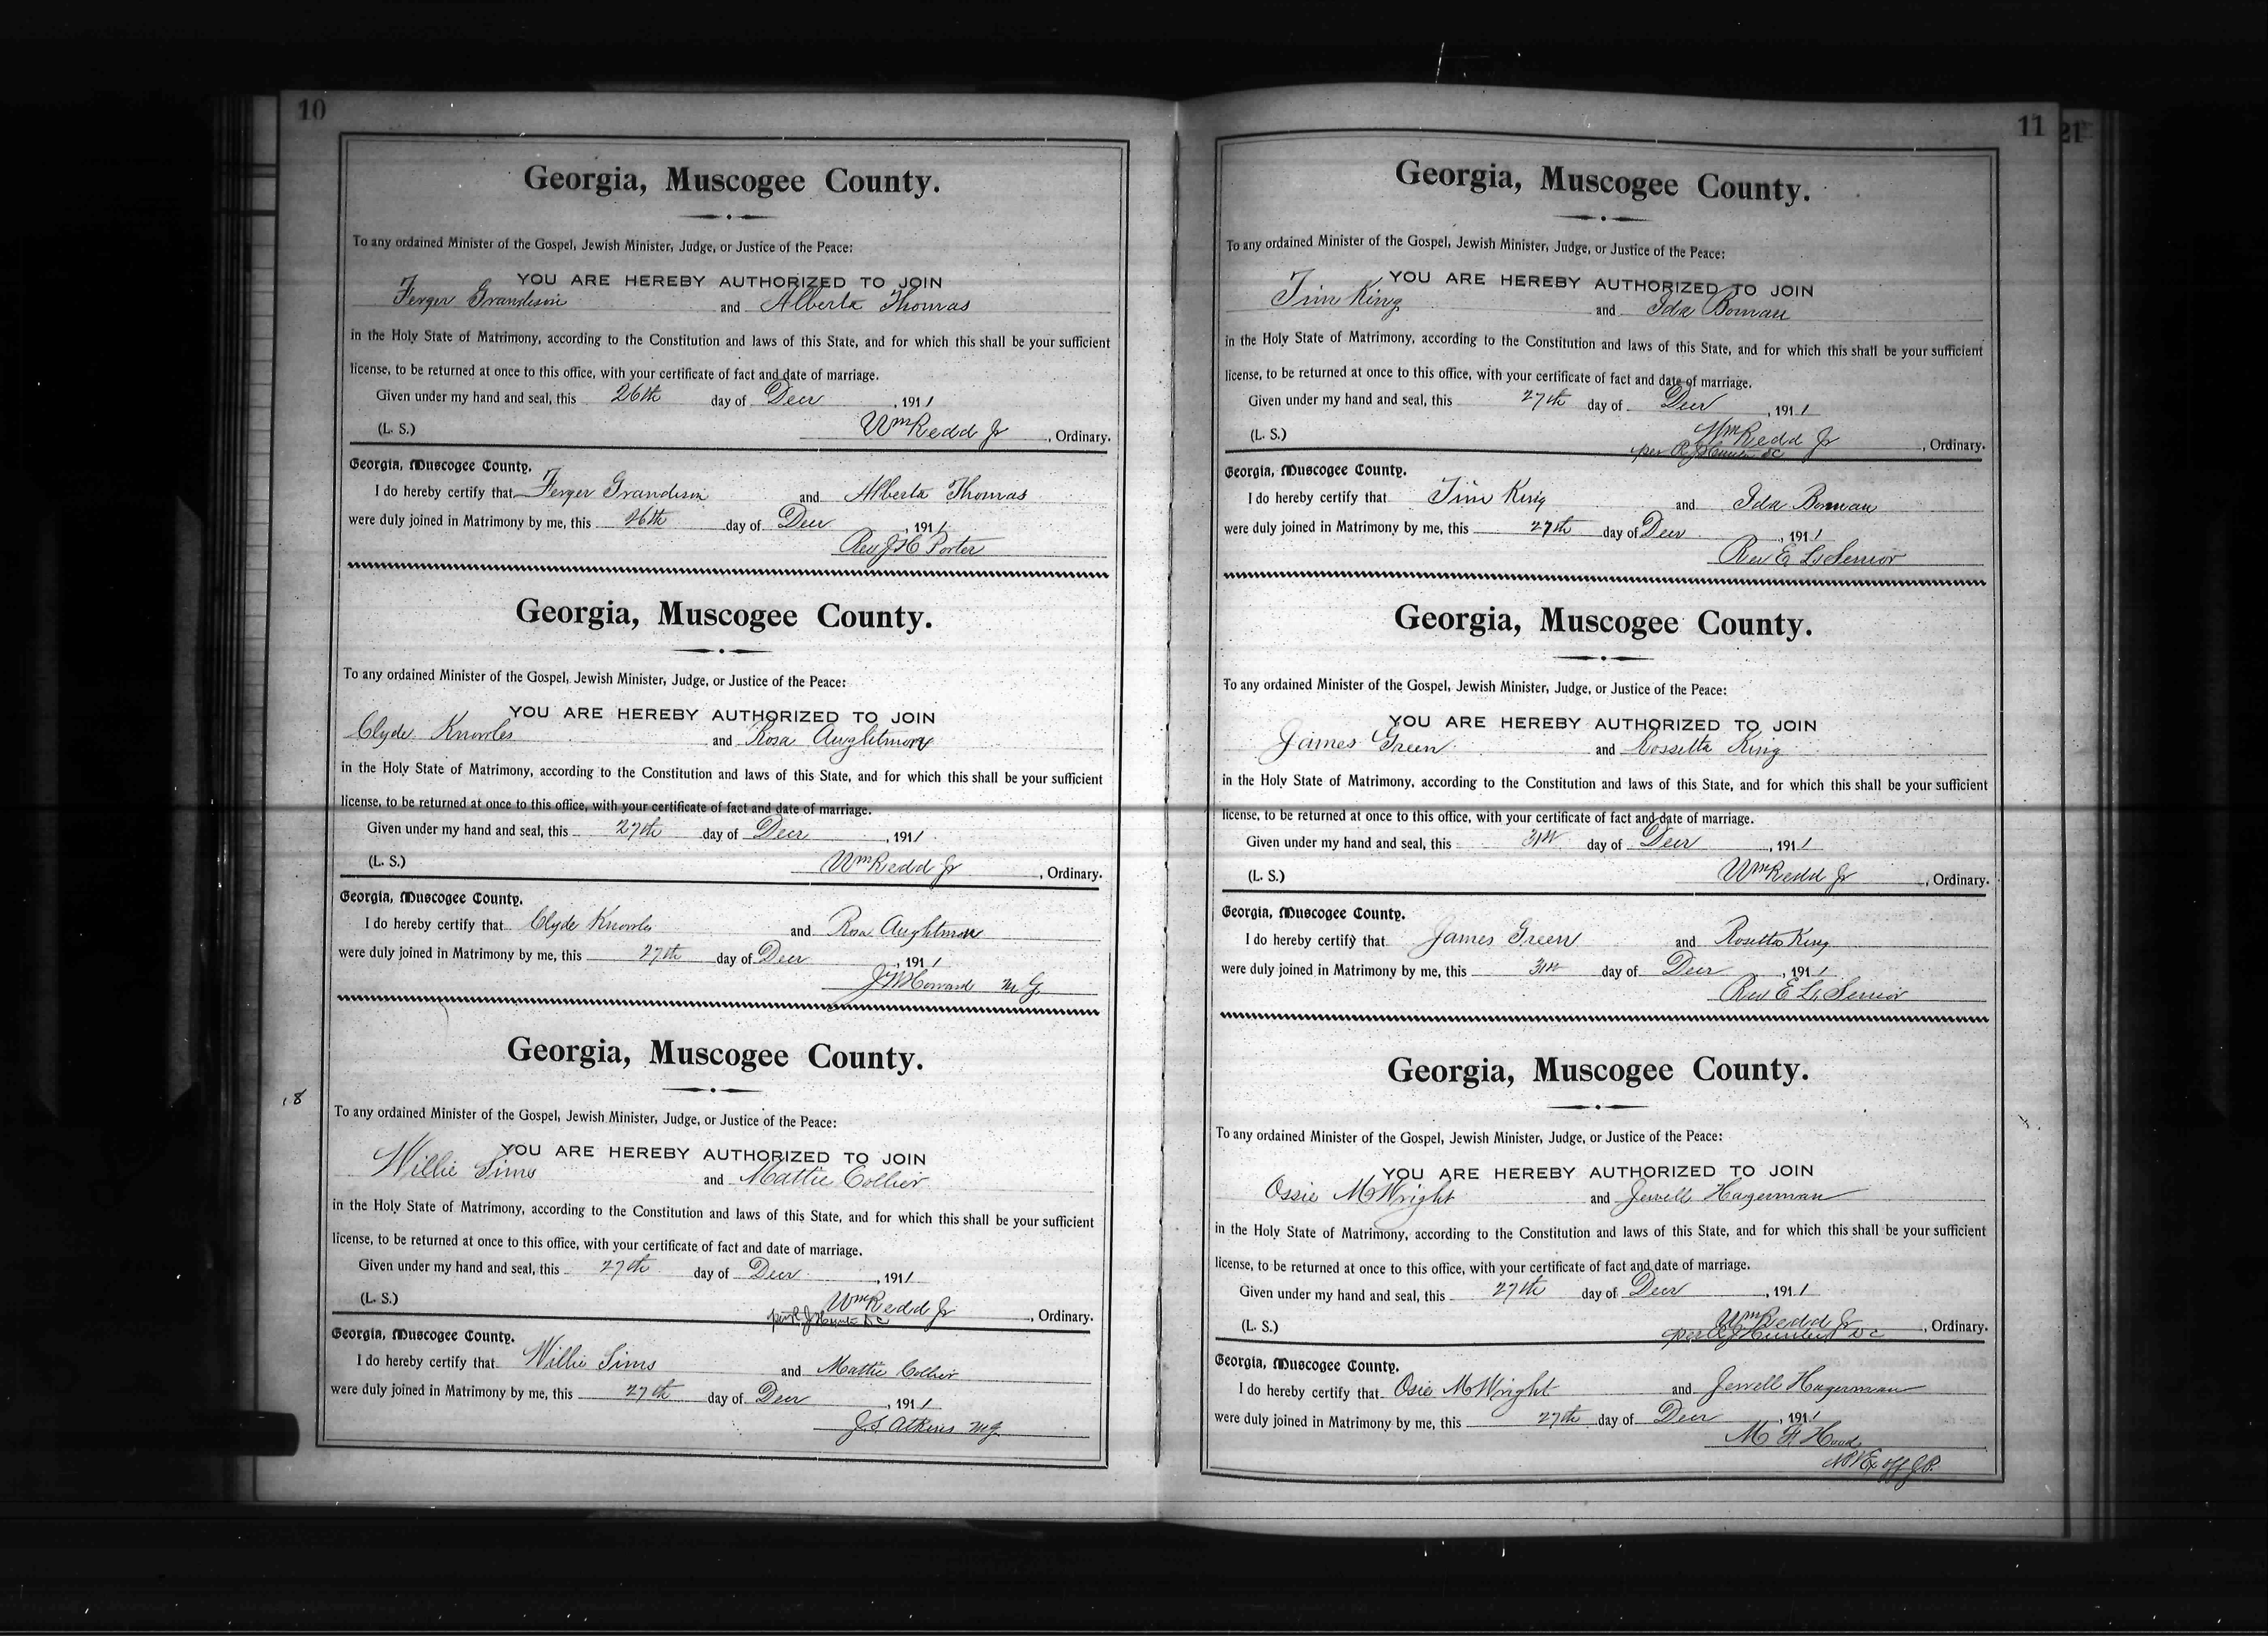 10
Georgia, Muscogee County.
To any ordained Minister of the Gospel, Jewish Minister, Judge, or Justice of the Peace:
YOU ARE HEREBY AUTHORIZED TO JOIN
Ferger Grandison and Alberta Thomas
in the Holy State of Matrimony, according to the Constitution and laws of this State, and for which this shall be your sufficient
license, to be returned at once to this office, with your certificate of fact and date of marriage.
Given under my hand and seal, this 26th day of Decr, 1911
(L. S.) Wm Redd Jr, Ordinary.
Georgia, Muscogee County.
I do hereby certify that Ferger Grandison and Alberta Thomas
were duly joined in Matrimony by me, this 26th day of Decr, 1911
Rev J H Porter
Georgia, Muscogee County.
To any ordained Minister of the Gospel, Jewish Minister, Judge, or Justice of the Peace:
YOU ARE HEREBY AUTHORIZED TO JOIN
Clyde Knowles and Rosa Aughtmon
in the Holy State of Matrimony, according to the Constitution and laws of this State, and for which this shall be your sufficient
license, to be returned at once to this office, with your certificate of fact and date of marriage.
Given under my hand and seal, this 27th day of Decr, 1911
(L. S.) Wm Redd Jr, Ordinary.
Georgia, Muscogee County.
I do hereby certify that Clyde Knowles and Rosa Aughtmon
were duly joined in Matrimony by me, this 27th day of Decr, 1911
J W Howard M G
Georgia, Muscogee County.
To any ordained Minister of the Gospel, Jewish Minister, Judge, or Justice of the Peace:
YOU ARE HEREBY AUTHORIZED TO JOIN
Willie Sims and Mattie Collier
in the Holy State of Matrimony, according to the Constitution and laws of this State, and for which this shall be your sufficient
license, to be returned at once to this office, with your certificate of fact and date of marriage.
Given under my hand and seal, this 27th day of Decr, 1911
(L. S.) Wm Redd Jr, Ordinary.
per R J Hunter DC
Georgia, Muscogee County.
I do hereby certify that Willie Sims and Mattie Collier
were duly joined in Matrimony by me, this 27th day of Decr, 1911
J. S. Atkins MG
11
21
Georgia, Muscogee County.
To any ordained Minister of the Gospel, Jewish Minister, Judge, or Justice of the Peace:
YOU ARE HEREBY AUTHORIZED TO JOIN
Tim King and Ida Boman
in the Holy State of Matrimony, according to the Constitution and laws of this State, and for which this shall be your sufficient
license, to be returned at once to this office, with your certificate of fact and date of marriage.
Given under my hand and seal, this 27th day of Decr, 1911
(L. S.) Wm Redd Jr, Ordinary.
per R J Hunter DC
Georgia, Muscogee County.
I do hereby certify that Tim King and Ida Boman
were duly joined in Matrimony by me, this 27th day of Decr, 1911
Rev E L Senior
Georgia, Muscogee County.
To any ordained Minister of the Gospel, Jewish Minister, Judge, or Justice of the Peace:
YOU ARE HEREBY AUTHORIZED TO JOIN
James Green and Rossetta King
in the Holy State of Matrimony, according to the Constitution and laws of this State, and for which this shall be your sufficient
license, to be returned at once to this office, with your certificate of fact and date of marriage.
Given under my hand and seal, this 31st day of Decr, 1911
(L. S.) Wm Redd Jr, Ordinary.
Georgia, Muscogee County.
I do hereby certify that James Green and Rosetta King
were duly joined in Matrimony by me, this 31st day of Decr, 1911
Rev E L Senior
Georgia, Muscogee County.
To any ordained Minister of the Gospel, Jewish Minister, Judge, or Justice of the Peace:
YOU ARE HEREBY AUTHORIZED TO JOIN
Ossie McWright and Jewell Hagerman
in the Holy State of Matrimony, according to the Constitution and laws of this State, and for which this shall be your sufficient
license, to be returned at once to this office, with your certificate of fact and date of marriage.
Given under my hand and seal, this 27th day of Decr, 1911
(L. S.) Wm Redd Jr, Ordinary.
per R J Hunter DC
Georgia, Muscogee County.
I do hereby certify that Osie McWright and Jewell Hagerman
were duly joined in Matrimony by me, this 27th day of Decr, 1911
M F Hood
NP & Ex off J.P.